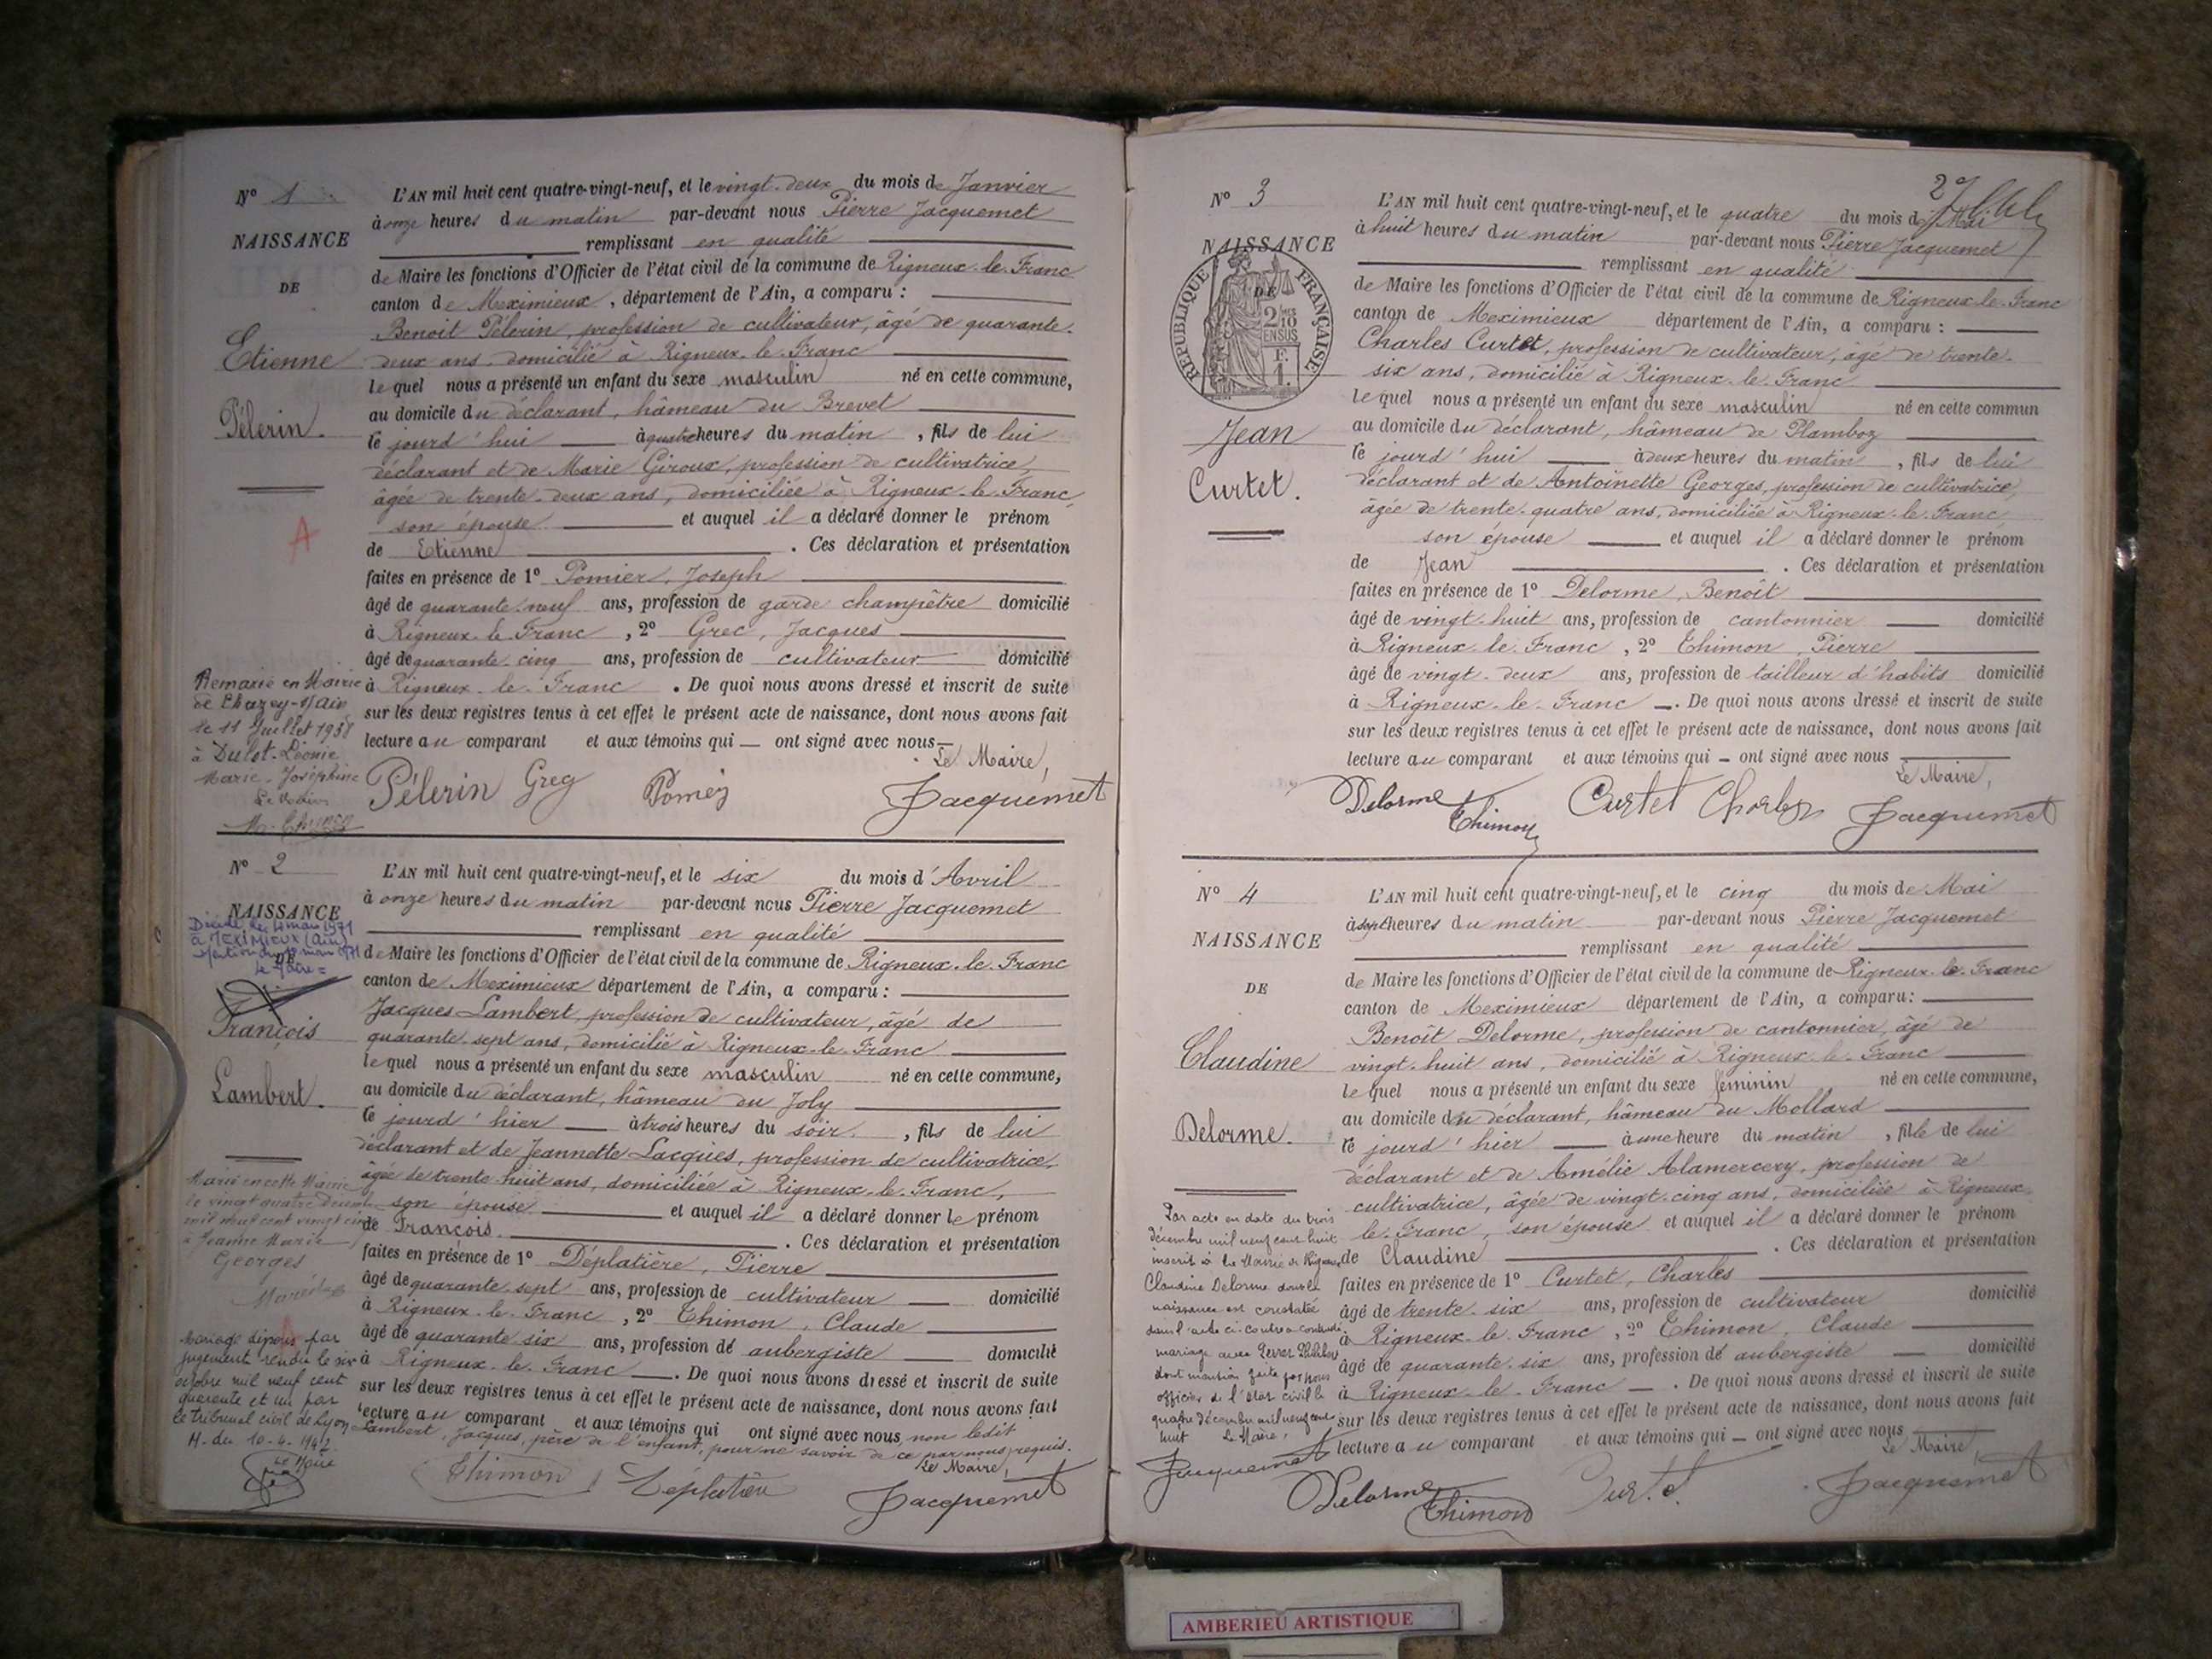 N° 1
NAISSANCE
DE
Etienne
Pélerin.
A
L'AN mil huit cent quatre-vingt-neuf, et le vingt-deux du mois de Janvier
à onze heures du matin par-devant nous Pierre Jacquemet
remplissant en qualité
de Maire les fonctions d'Officier de l'état civil de la commune de Rigneux-le-Franc
canton de Meximieux, département de l'Ain, a comparu :
Benoit Pélerin, profession de cultivateur, âgé de quarante-
deux ans, domicilié à Rigneux-le-Franc
lequel nous a présenté un enfant du sexe masculin né en cette commune,
au domicile du déclarant, hâmeau du Brevet
ce jourd'hui à quatre heures du matin, fils de lui
déclarant et de Marie Giroux, profession de cultivatrice,
âgée de trente-deux ans, domiciliée à Rigneux-le-Franc,
son épouse et auquel il a déclaré donner le prénom
de Etienne . Ces déclaration et présentation
faites en présence de 1° Pomier, Joseph
âgé de quarante-neuf ans, profession de garde champêtre domicilié
à Rigneux-le-Franc, 2° Grec, Jacques
âgé de quarante-cinq ans, profession de cultivateur domicilié
à Rigneux-le-Franc . De quoi nous avons dressé et inscrit de suite
sur les deux registres tenus à cet effet le présent acte de naissance, dont nous avons fait
lecture au comparant et aux témoins qui ont signé avec nous
Le Maire,
Pélerin Greg Pomier Jacquemet
Remarié en Mairie
de Chazey-s/Ain
le 11 Juillet 1958
à Dulot Léonie
Marie-Joséphine
N° 2
NAISSANCE
DE
Décédé le 4 mars 1971
à MEXIMIEUX (Ain)
Le Maire =
François
Lambert.
L'AN mil huit cent quatre-vingt-neuf, et le six du mois d'Avril
à onze heures du matin par-devant nous Pierre Jacquemet
remplissant en qualité
de Maire les fonctions d'Officier de l'état civil de la commune de Rigneux-le-Franc
canton de Meximieux département de l'Ain, a comparu :
Jacques Lambert, profession de cultivateur, âgé de
quarante-sept ans, domicilié à Rigneux-le-Franc
lequel nous a présenté un enfant du sexe masculin né en cette commune,
au domicile du déclarant, hâmeau du Joly
ce jourd'hier à trois heures du soir, fils de lui
déclarant et de Jeannette Lacques, profession de cultivatrice,
âgée de trente-huit ans, domiciliée à Rigneux-le-Franc,
son épouse et auquel il a déclaré donner le prénom
de François. . Ces déclaration et présentation
faites en présence de 1° Déplatière, Pierre
âgé de quarante-sept ans, profession de cultivateur domicilié
à Rigneux-le-Franc, 2° Thimon, Claude
âgé de quarante-six ans, profession de aubergiste domicilié
à Rigneux-le-Franc . De quoi nous avons dressé et inscrit de suite
sur les deux registres tenus à cet effet le présent acte de naissance, dont nous avons fait
lecture au comparant et aux témoins qui ont signé avec nous non ledit
Lambert, Jacques, père de l'enfant, pour ne savoir de ce par nous requis.
Le Maire,
Thimon Déplatière Jacquemet
Marié en cette Mairie
le vingt quatre
mil neuf cent vingt cinq
à Jeanne Marie
Georges
Mariage dissous par
jugement rendu le six
octobre mil neuf cent
quarante et un par
le tribunal civil de Lyon
M. du 10-4-1942
Le Maire
27
N° 3
NAISSANCE
DE
RÉPUBLIQUE FRANÇAISE
2/10 EN SUS
1 F.
Jean
Curtet.
L'AN mil huit cent quatre-vingt-neuf, et le quatre du mois de Mai
à huit heures du matin par-devant nous Pierre Jacquemet
remplissant en qualité
de Maire les fonctions d'Officier de l'état civil de la commune de Rigneux-le-Franc
canton de Meximieux département de l'Ain, a comparu :
Charles Curtet, profession de cultivateur, âgé de trente-
six ans, domicilié à Rigneux-le-Franc
lequel nous a présenté un enfant du sexe masculin né en cette commun
au domicile du déclarant, hâmeau de Plamboz
ce jourd'hui à deux heures du matin, fils de lui
déclarant et de Antoinette Georges, profession de cultivatrice,
âgée de trente-quatre ans, domiciliée à Rigneux-le-Franc,
son épouse et auquel il a déclaré donner le prénom
de Jean . Ces déclaration et présentation
faites en présence de 1° Delorme, Benoît
âgé de vingt-huit ans, profession de cantonnier domicilié
à Rigneux-le-Franc, 2° Thimon, Pierre
âgé de vingt-deux ans, profession de tailleur d'habits domicilié
à Rigneux-le-Franc . De quoi nous avons dressé et inscrit de suite
sur les deux registres tenus à cet effet le présent acte de naissance, dont nous avons fait
lecture au comparant et aux témoins qui ont signé avec nous
Le Maire,
Delorme Thimon Curtet Charles Jacquemet
N° 4
NAISSANCE
DE
Claudine
Delorme.
L'AN mil huit cent quatre-vingt-neuf, et le cinq du mois de Mai
à sept heures du matin par-devant nous Pierre Jacquemet
remplissant en qualité
de Maire les fonctions d'Officier de l'état civil de la commune de Rigneux-le-Franc
canton de Meximieux département de l'Ain, a comparu :
Benoît Delorme, profession de cantonnier, âgé de
vingt-huit ans, domicilié à Rigneux-le-Franc
lequel nous a présenté un enfant du sexe féminin né en cette commune,
au domicile du déclarant, hâmeau du Mollard
ce jourd'hier à une heure du matin, fille de lui
déclarant et de Amélie Alamercery, profession de
cultivatrice, âgée de vingt-cinq ans, domiciliée à Rigneux
le-Franc, son épouse et auquel il a déclaré donner le prénom
de Claudine . Ces déclaration et présentation
faites en présence de 1° Curtet, Charles
âgé de trente-six ans, profession de cultivateur domicilié
à Rigneux-le-Franc, 2° Thimon, Claude
âgé de quarante-six ans, profession de aubergiste domicilié
à Rigneux-le-Franc . De quoi nous avons dressé et inscrit de suite
sur les deux registres tenus à cet effet le présent acte de naissance, dont nous avons fait
lecture au comparant et aux témoins qui ont signé avec nous
Le Maire,
Delorme Thimon Curtet Jacquemet
Par acte en date du trois
décembre mil neuf cent huit
inscrit à la Mairie de Rigneux
Claudine Delorme dont la
naissance est constatée
dans l'acte ci-contre a contracté
mariage avec
dont mention faite par nous
officier de l'état civil le
quatre décembre mil neuf cent
huit Le Maire,
Jacquemet
AMBERIEU ARTISTIQUE